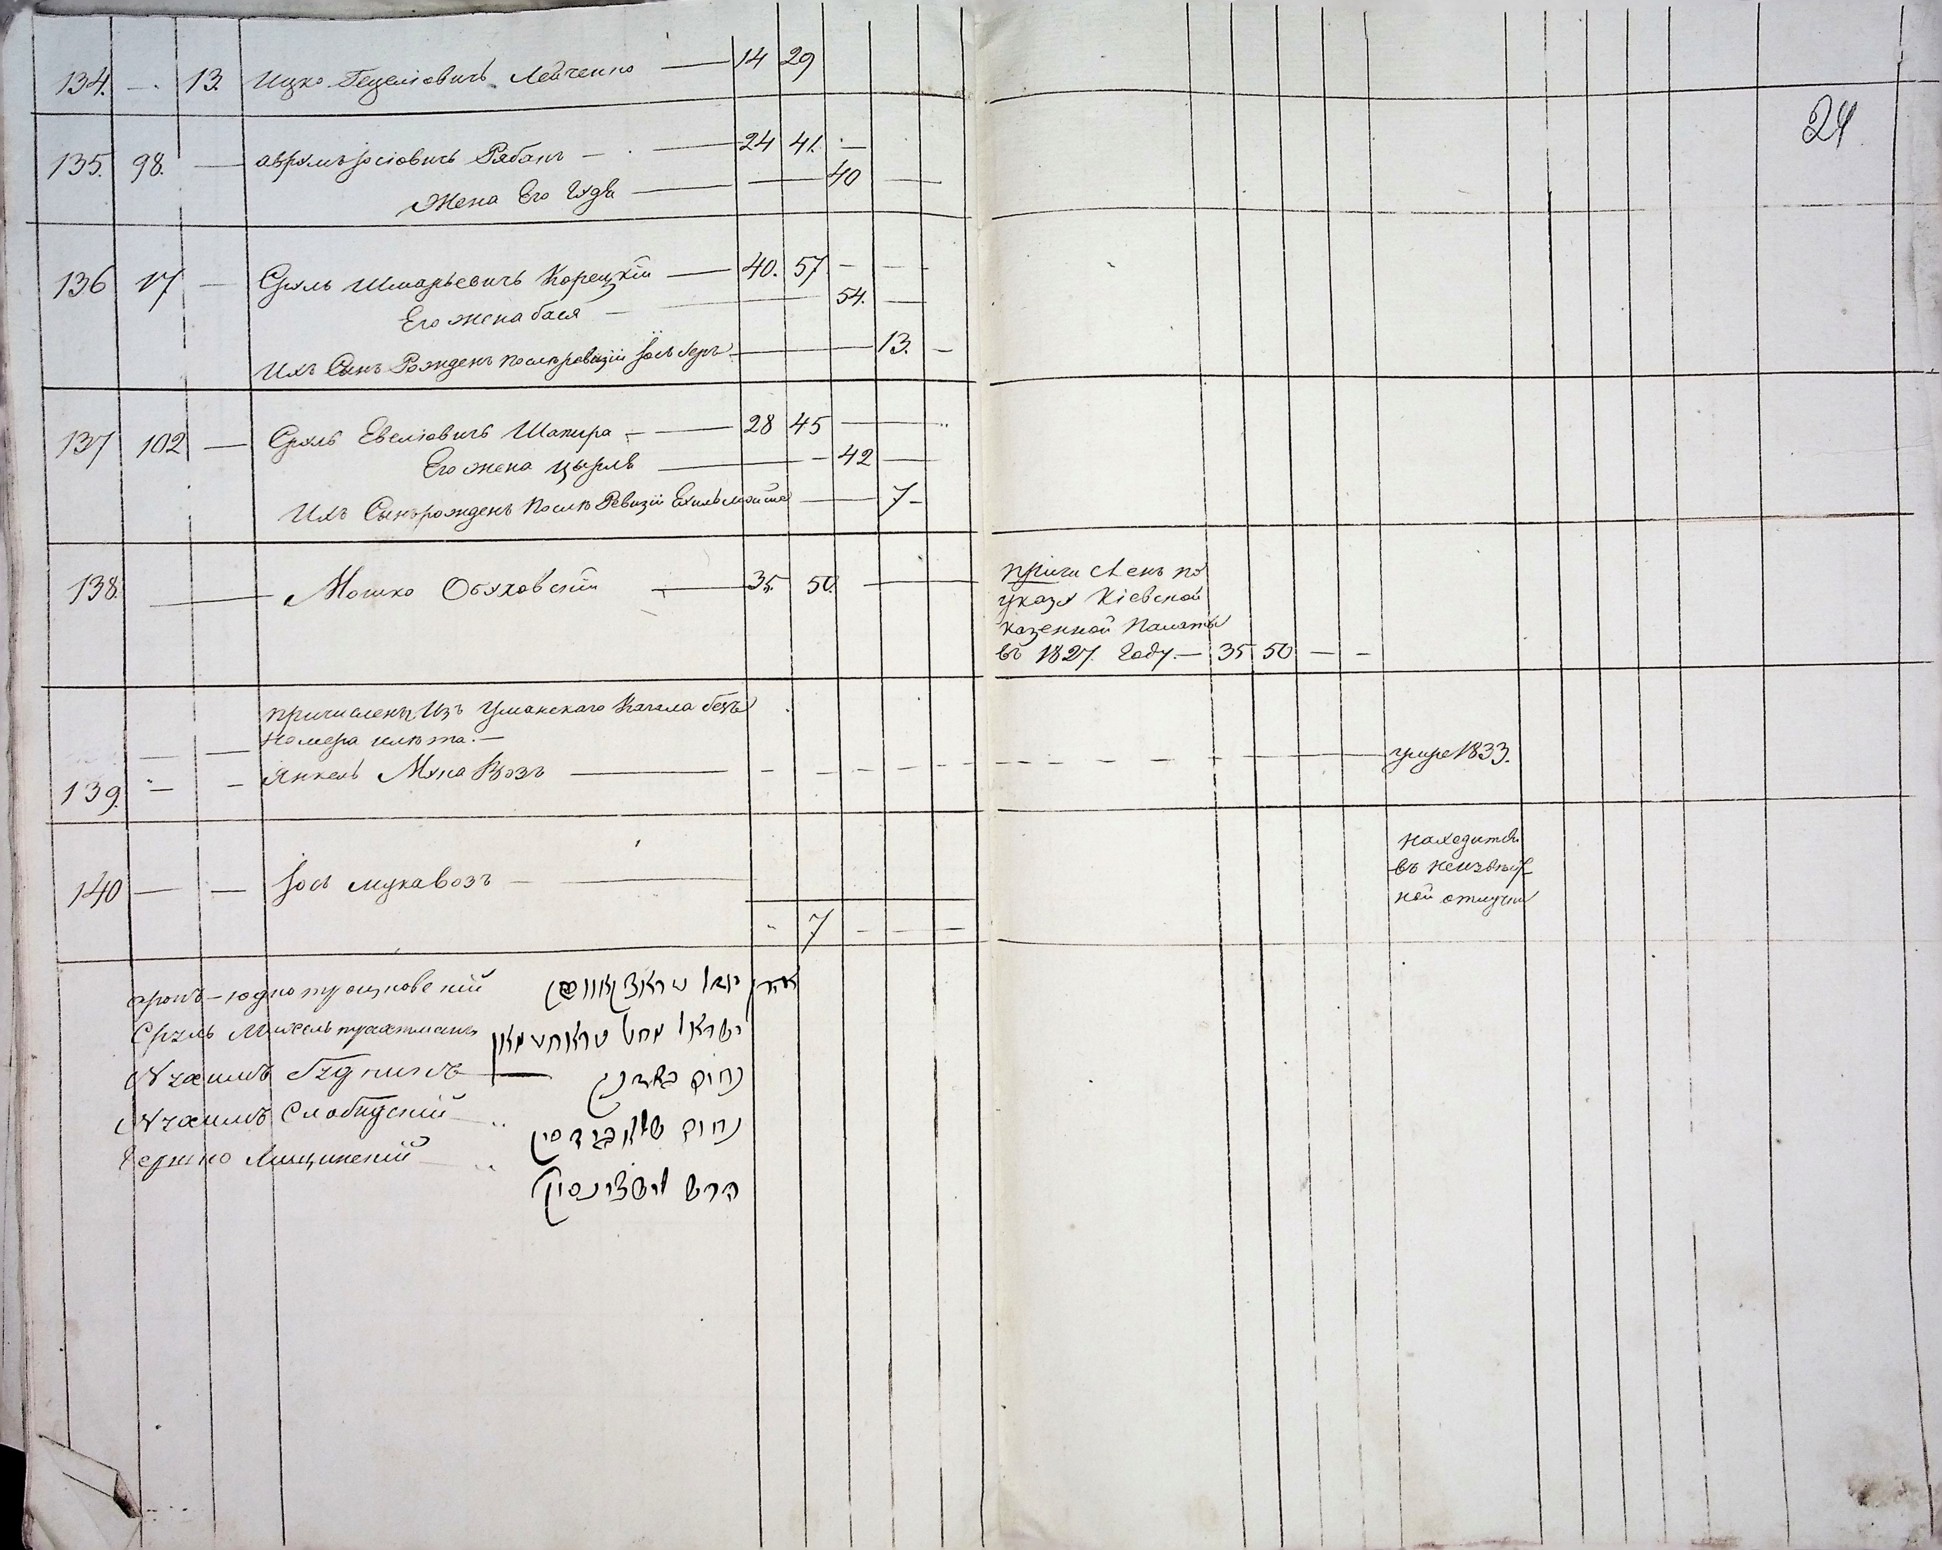 134. — 13. Ицко Гецелiовичъ Левченко — 14 29
24
135. 98. — Аврумъ Iосiовичъ Рябанъ — 24 41. —
Жена Его Худя — 40 —
136 17 — Сруль Шмарьевичъ Корецкiй — 40. 57 — —
Его жена бася — 54. —
Ихъ Сынъ Рожденъ послѣ ревизiи Iосъ беръ — 13. —
137 102 — Сруль Евелiовичъ Шапира — 28 45 —
Его жена цырля — 42 —
Ихъ Сынъ рожденъ послѣ Ревизiи Ехиль мойше — 7 —
138. — Мошко Обуховскiй — 35. 50. —
Причисленъ по
указу Кiевской
казенной Палаты
въ 1827. Году. — 35 50 — —
причислены Изъ Уманскаго Кагала безъ
номера
139. — — Янкель Мукавозъ — умре 1833.
140 — — Iось мукавозъ —
находится
въ неизвѣст
ной отлучки
7 — — —
Сруль Михель трахтманъ ישראל מחל טראחטמאן
Нухимъ נחום
Нухимъ Слободскiй נחום
Гершко Лищинскiй הרש לישצינסקי